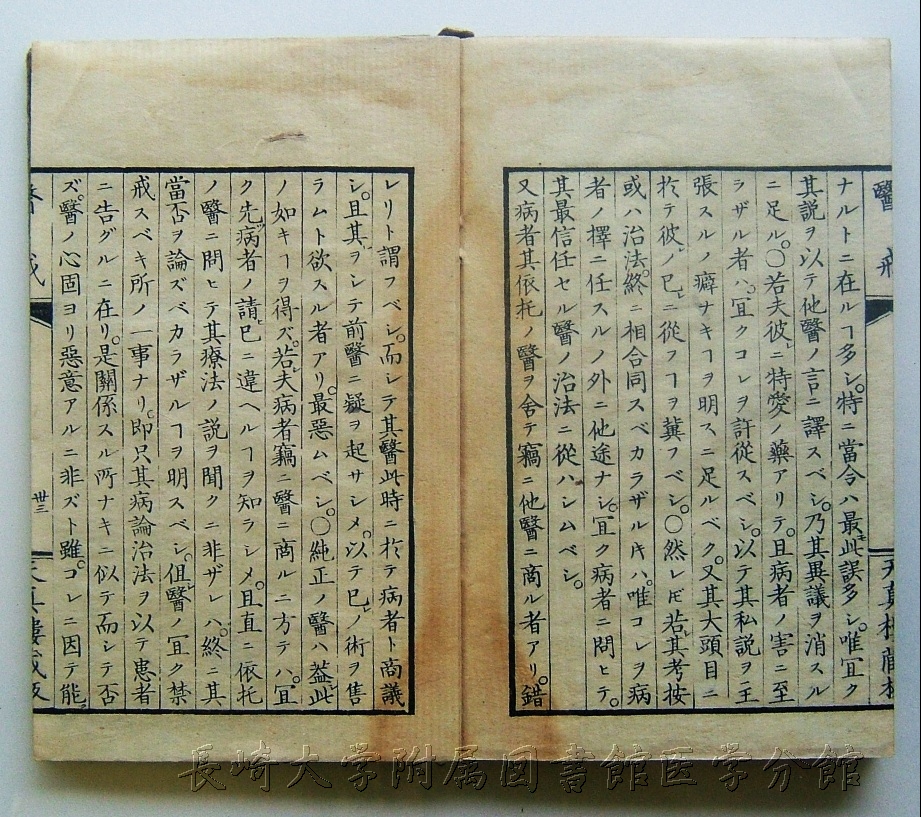 醫戒
天真樓蔵板
ナルトニ在ルヿ多シ。特ニ當今ハ最此誤多シ。唯宜ク
其説ヲ以テ他醫ノ言ニ譯スベシ。乃其異議ヲ消スル
ニ足ル。〇若夫彼ニ特愛ノ藥アリテ。且病者ノ害ニ至
ラザル者ハ。宜クコレヲ許從スベシ。以テ其私説ヲ主
張スルノ癖ナキヿヲ明スニ足ルベク。又其大頭目ニ
於テ彼ノ已ニ從フヿヲ冀フベシ。〇然レ𪜈若其考按
或ハ治法。終ニ相合同スベカラザルキハ。唯コレヲ病
者ノ擇ニ任スルノ外ニ他途ナシ。宜ク病者ニ問ヒテ。
其最信任セル醫ノ治法ニ從ハシムベシ。
又病者其依托ノ醫ヲ舍テ竊ニ他醫ニ商ル者アリ。錯
レリト謂フベシ。而シテ其醫此時ニ於テ病者ト商議
シ。且其ヲシテ前醫ニ疑ヲ起サシメ。以テ已ノ術ヲ售
ラムト欲スル者アリ。最惡ムベシ。〇純正ノ醫ハ益此
ノ如キヿヲ得ズ。若夫病者竊ニ醫ニ商ルニ方テハ。宜
ク先病者ノ請已ニ違ヘルヿヲ知ラシメ。且直ニ依托
ノ醫ニ問ヒテ其療法ノ説ヲ聞クニ非ザレハ。終ニ其
當否ヲ論ズベカラザルヿヲ明スベシ。但醫ノ宜ク禁
戒スベキ所ノ一事ナリ。即只其病論治法ヲ以テ患者
ニ告グルニ在リ。是關係スル所ナキニ似テ而シテ否
ズ。醫ノ心固ヨリ惡意アルニ非ズト雖。コレニ因テ能
醫戒
卅三
天真樓蔵板
長崎大学附属図書館医学分館